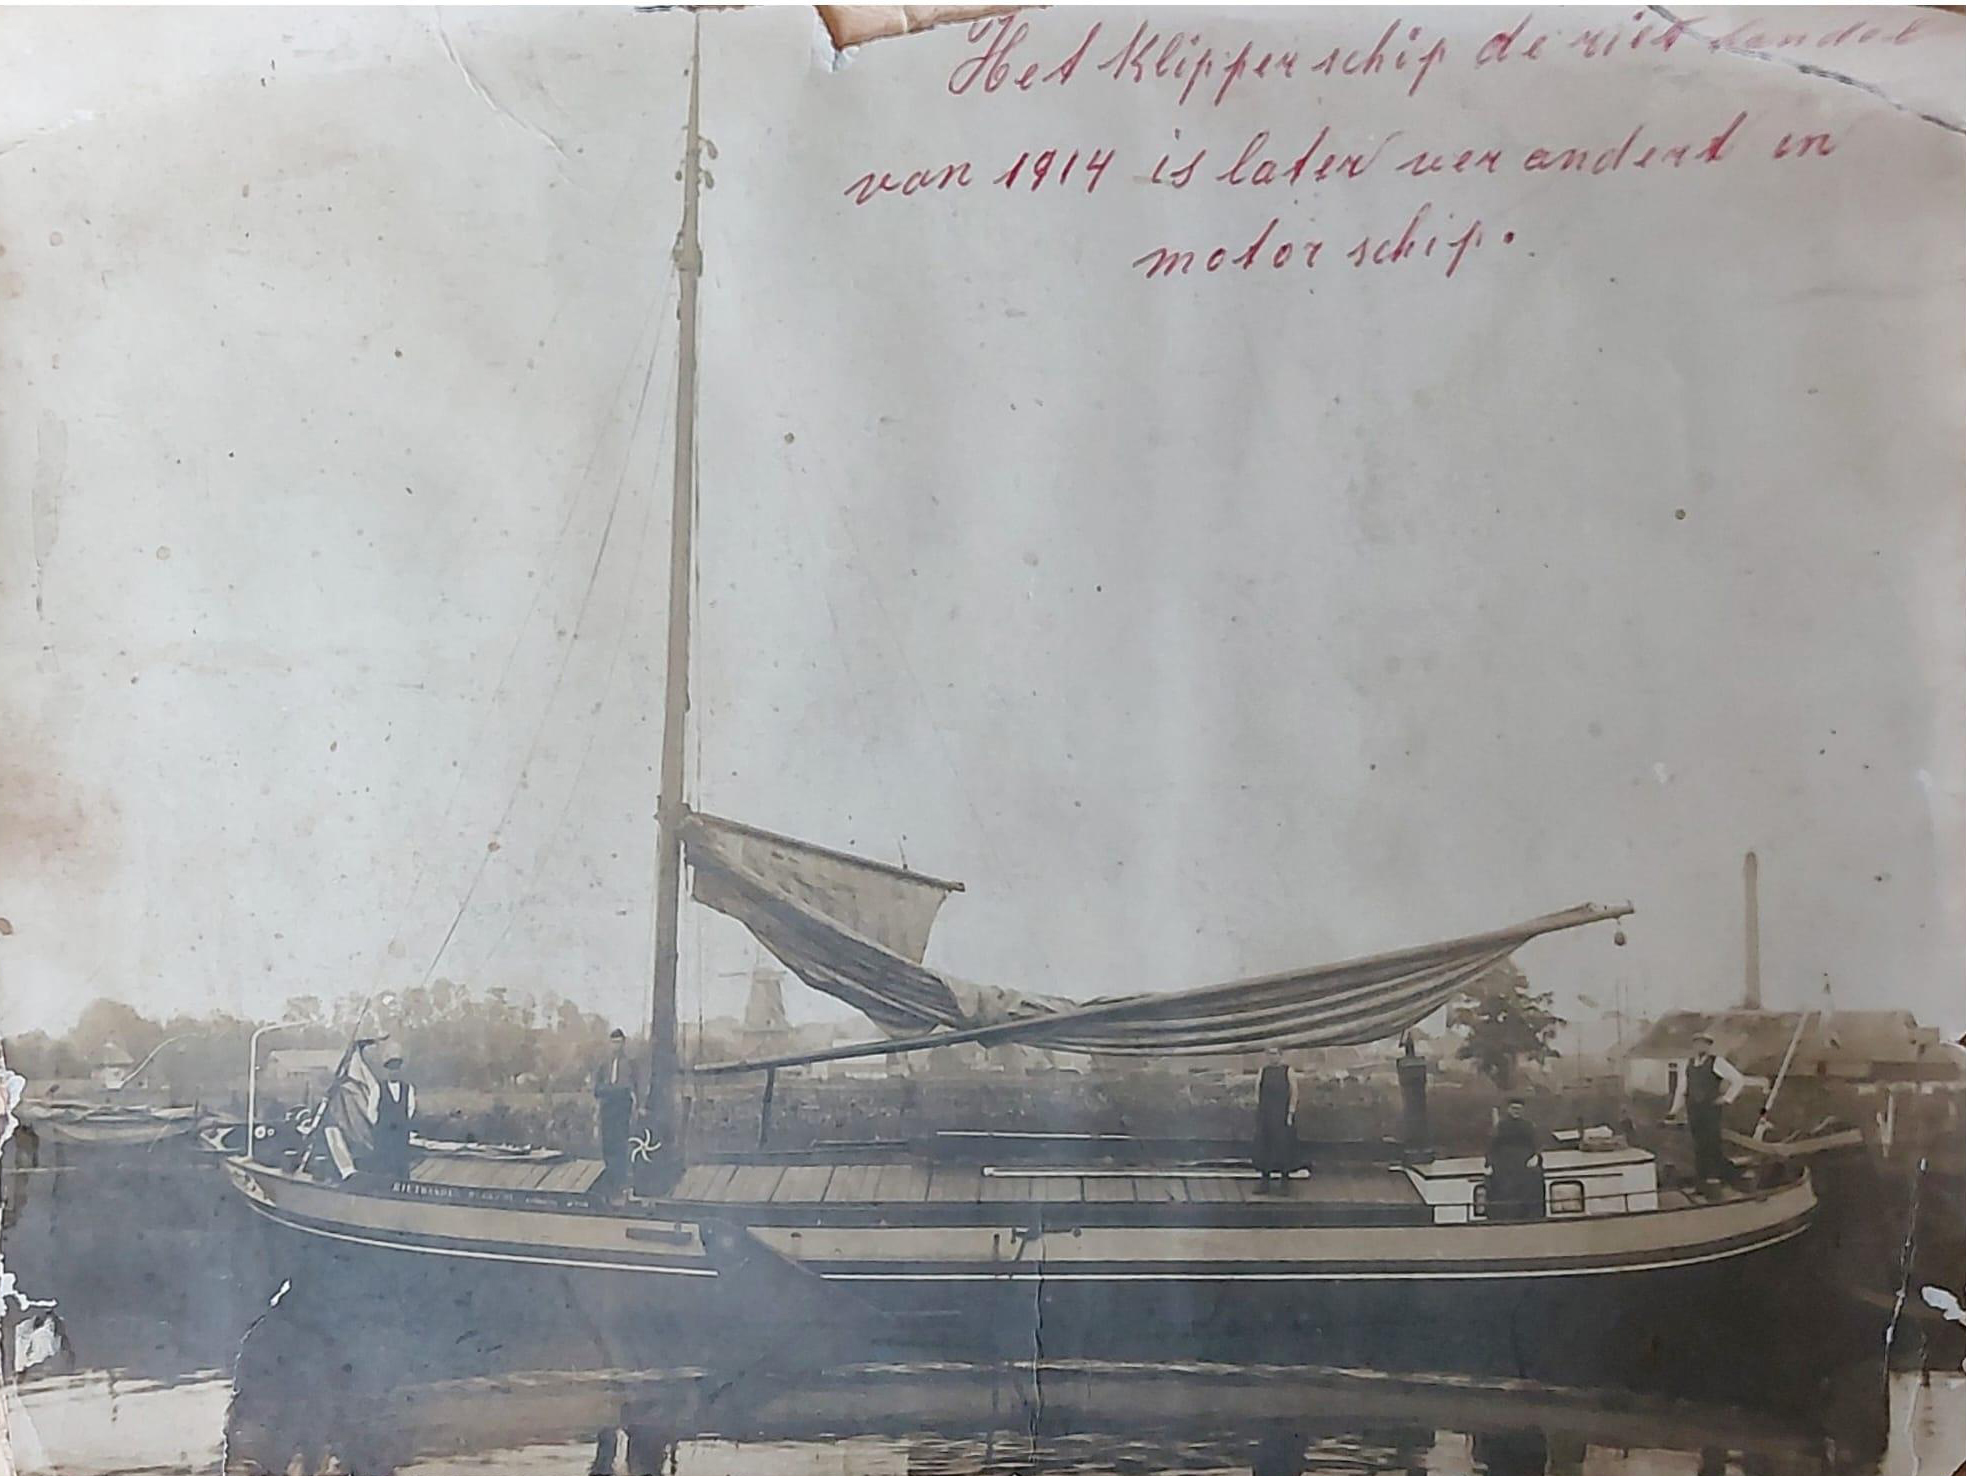 Het Klipper schip de riet landen
van 1914 is later ver andert in
motor schip.